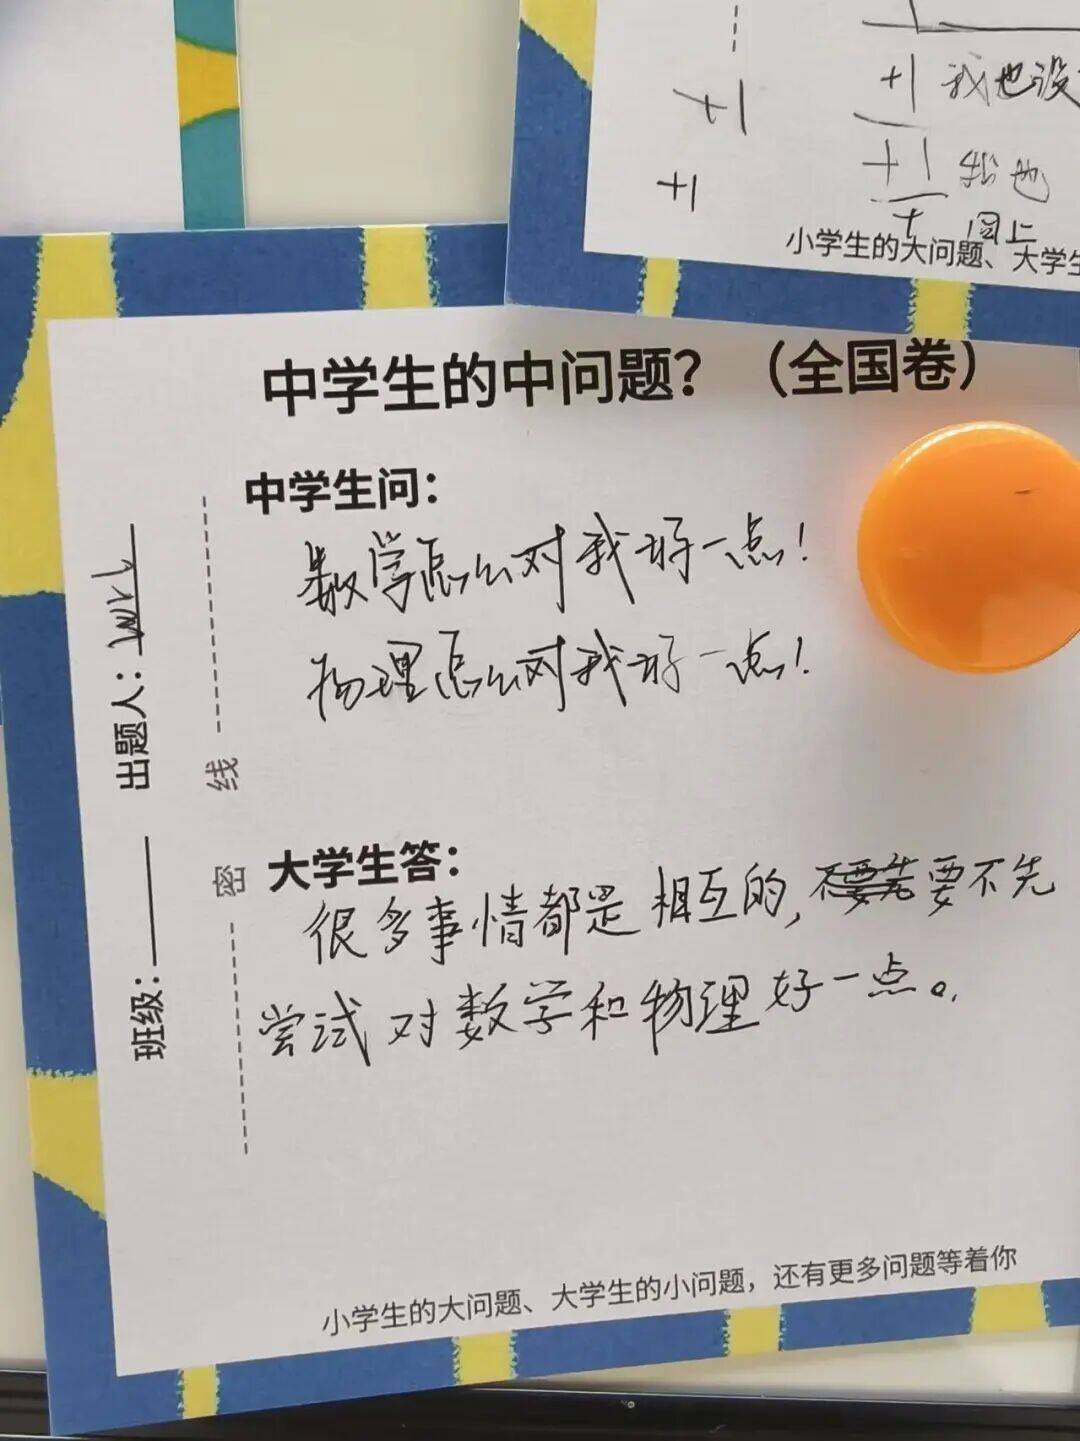 +1
+1 我也没
+1
+1 我也
同上
小学生的大问题、大学生
中学生的中问题？（全国卷）
中学生问：
数学怎么对我好一点！
物理怎么对我好一点！
大学生答：
很多事情都是相互的，要不先
尝试对数学和物理好一点。
班级： 出题人：
密 线
小学生的大问题、大学生的小问题，还有更多问题等着你